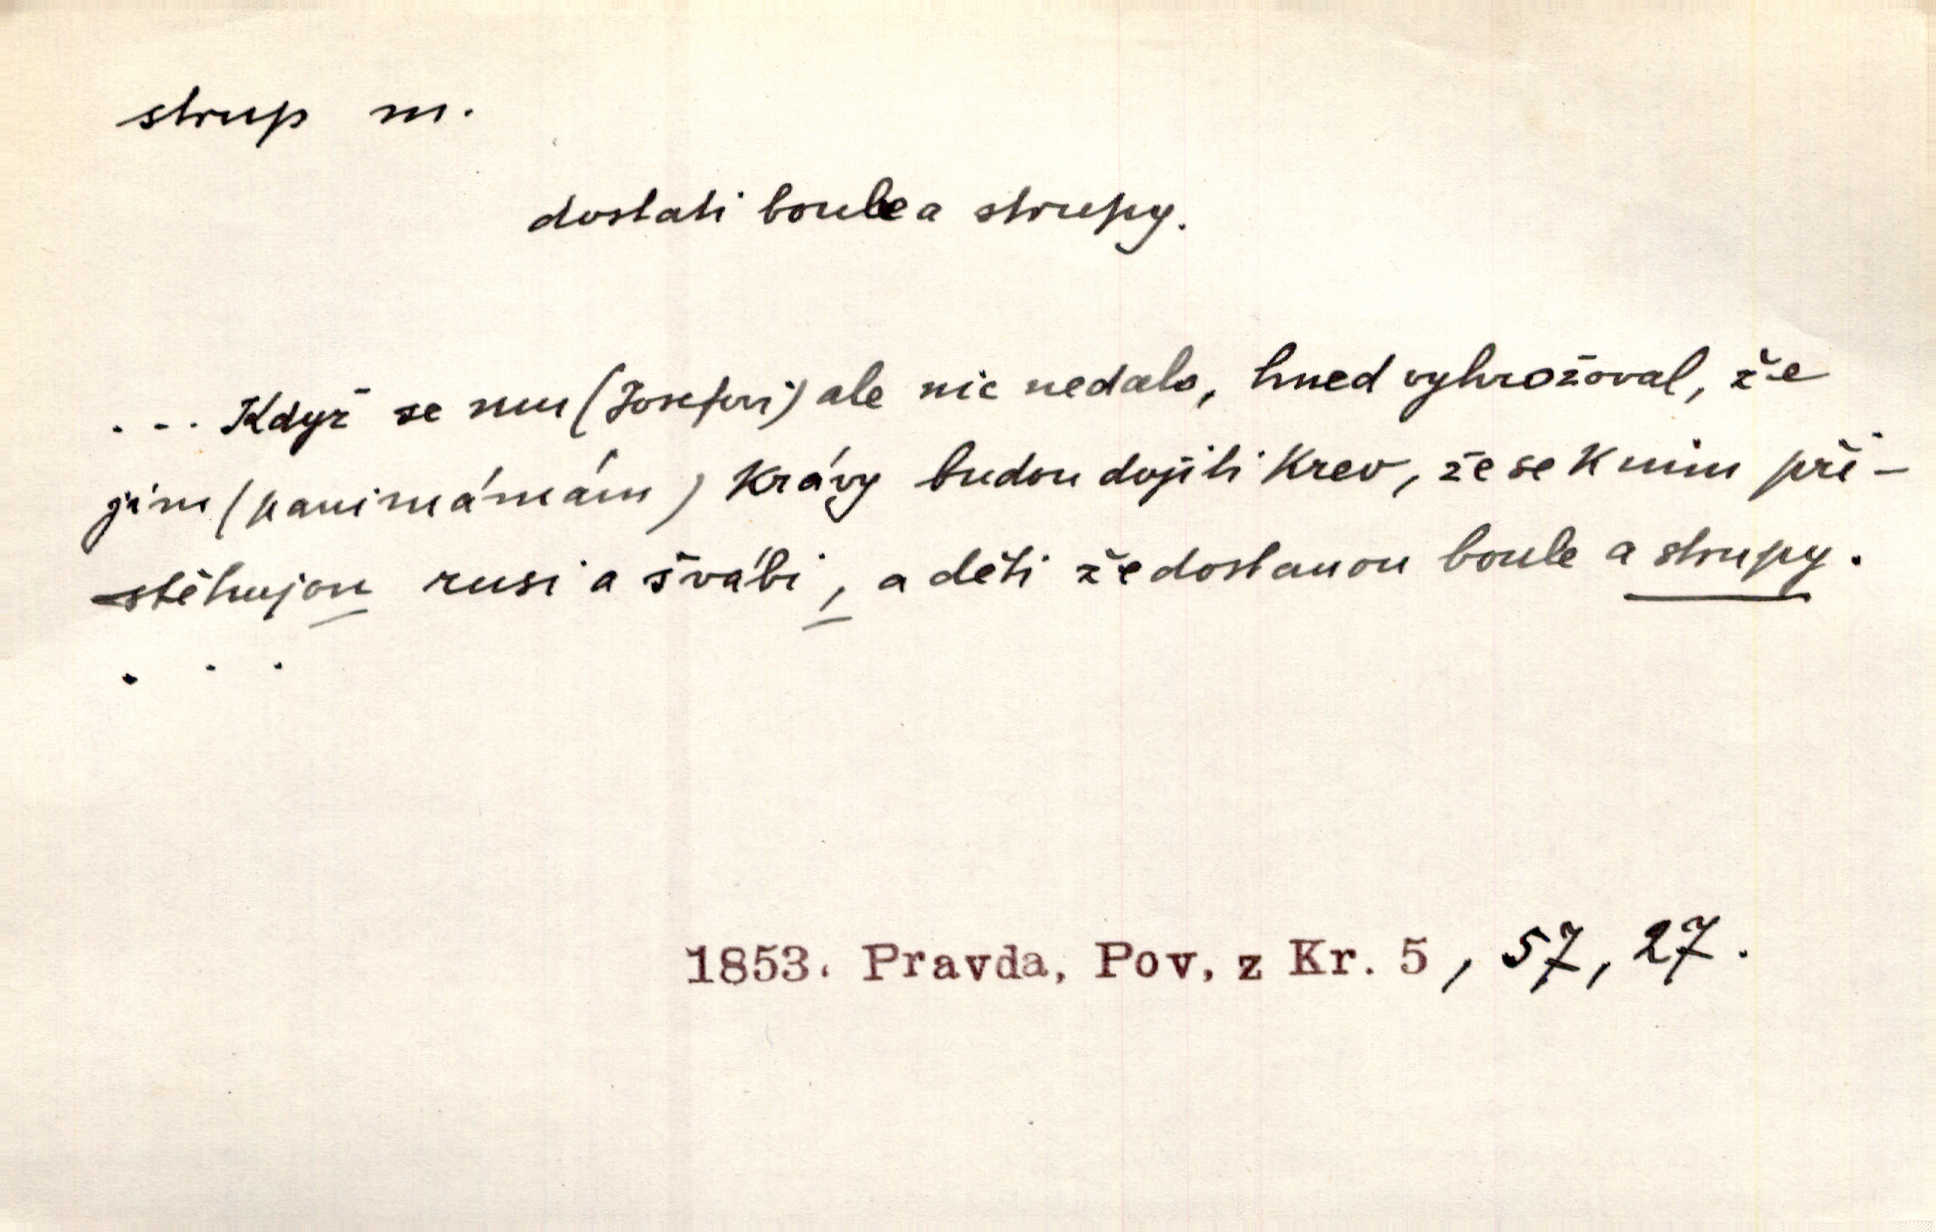 strup m.
dostati boule a strupy.
... Když se mu (Josefovi) ale nic nedalo, hned vyhrožoval, že
jim (panimámám) krávy budou dojiti krev, že se k nim při-
stěhujou rusi a švábi, a děti že dostanou boule a strupy.
. . .
1853. Pravda, Pov. z Kr. 5, 57, 27.